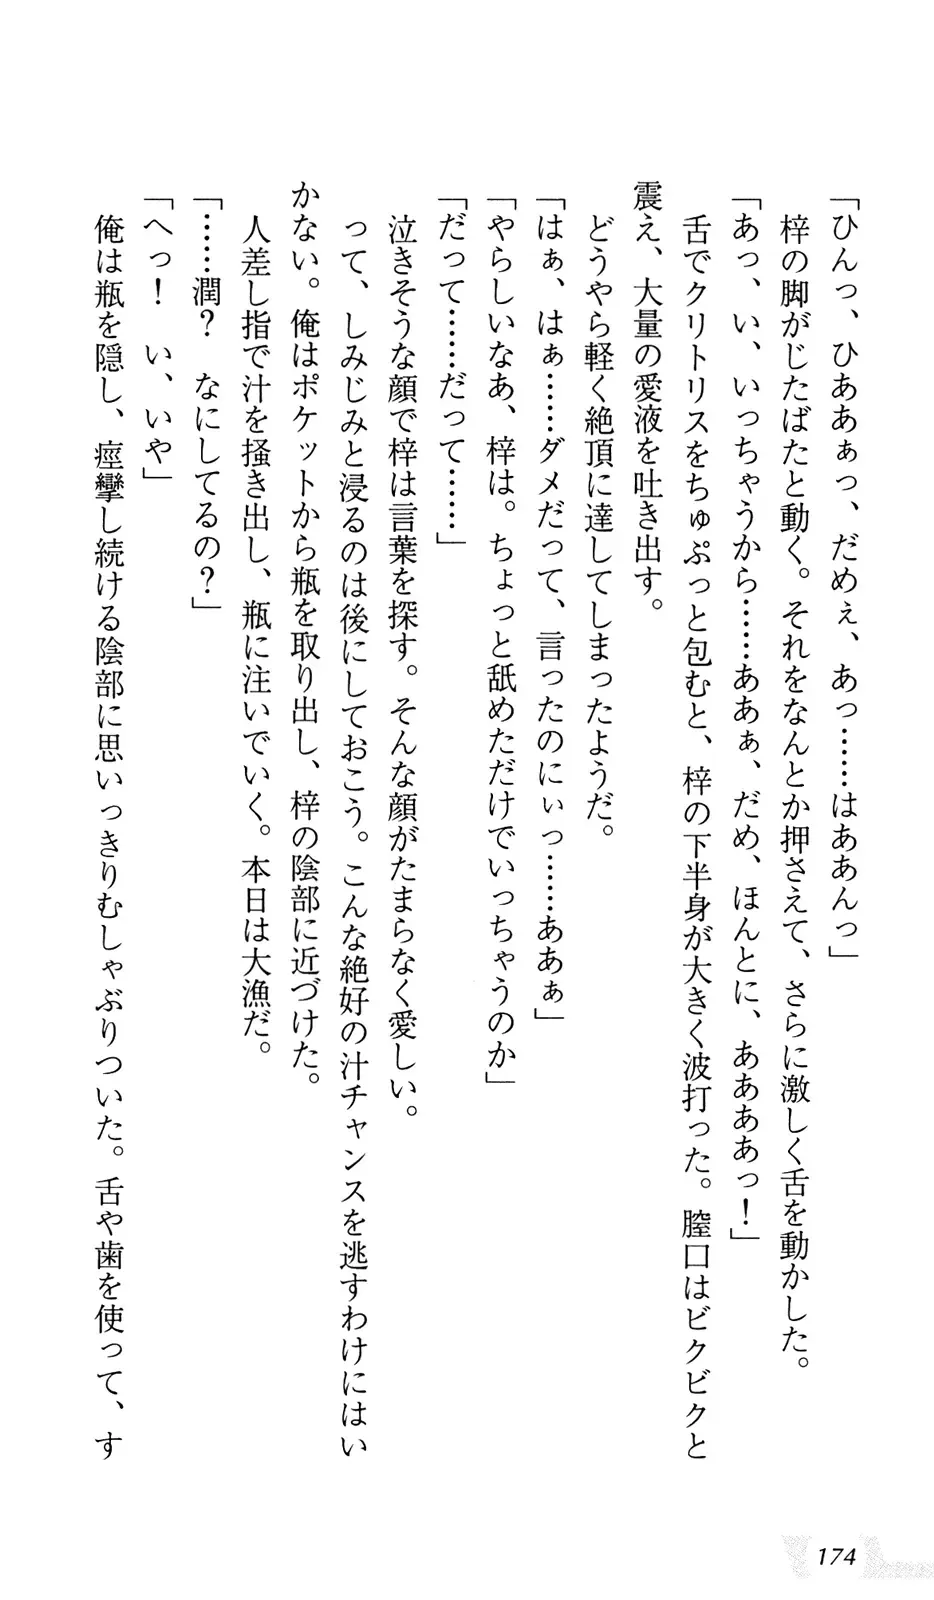 「ひんっ、ひああぁっ、だめぇ、あっ……はああんっ」
梓の脚がじたばたと動く。それをなんとか押さえて、さらに激しく舌を動かした。
「あっ、い、いっちゃうから……ああぁ、だめ、ほんとに、ああああっ！」
舌でクリトリスをちゅぷっと包むと、梓の下半身が大きく波打った。膣口はビクビクと
震え、大量の愛液を吐き出す。
どうやら軽く絶頂に達してしまったようだ。
「はぁ、はぁ……ダメだって、言ったのにぃっ……ああぁ」
「やらしいなあ、梓は。ちょっと舐めただけでいっちゃうのか」
「だって……だって……」
泣きそうな顔で梓は言葉を探す。そんな顔がたまらなく愛しい。
って、しみじみと浸るのは後にしておこう。こんな絶好の汁チャンスを逃すわけにはい
かない。俺はポケットから瓶を取り出し、梓の陰部に近づけた。
人差し指で汁を掻き出し、瓶に注いでいく。本日は大漁だ。
「……潤？　なにしてるの？」
「へっ！　い、いや」
俺は瓶を隠し、痙攣し続ける陰部に思いっきりむしゃぶりついた。舌や歯を使って、す
174